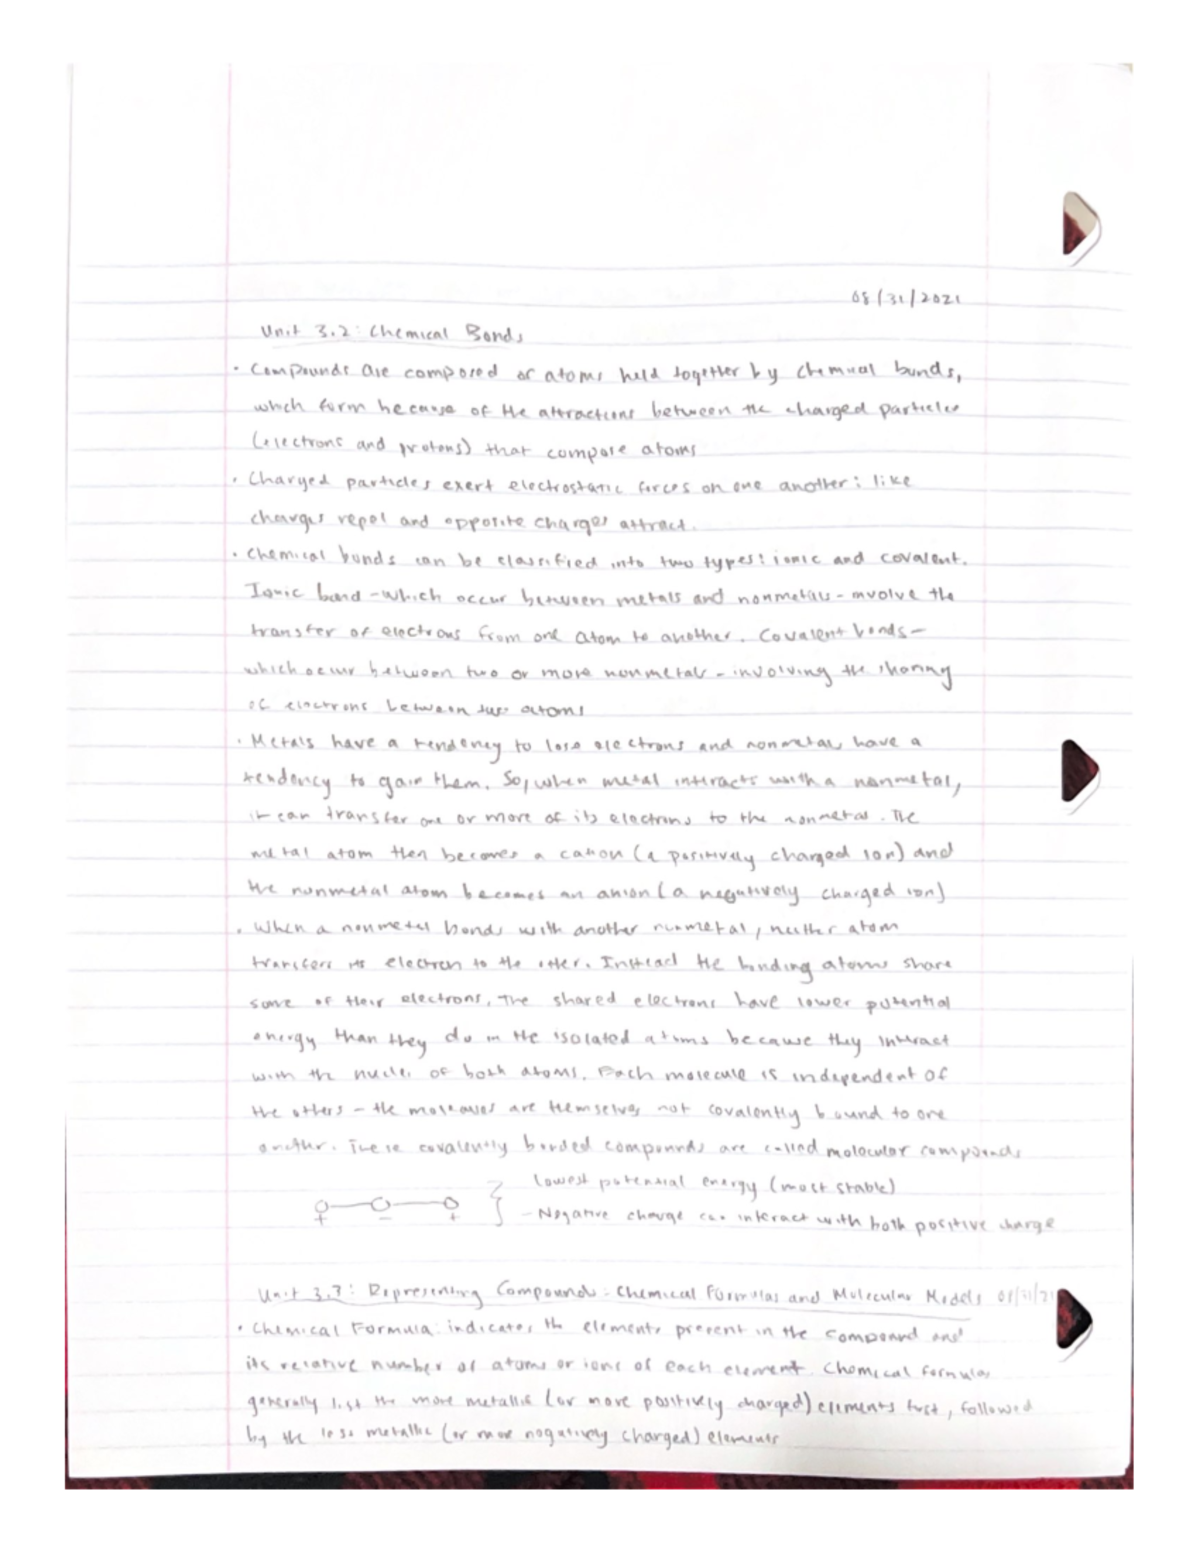 08/31/2021
Unit 3.2: Chemical Bonds
· Compounds are composed of atoms held together by chemical bonds,
which form because of the attractions between the charged particles
(electrons and protons) that compose atoms
· Charged particles exert electrostatic forces on one another: like
charges repel and opposite charges attract.
· Chemical bonds can be classified into two types: ionic and covalent.
Ionic bond - which occur between metals and nonmetals - involve the
transfer of electrons from one atom to another. Covalent bonds -
which occur between two or more nonmetals - involving the sharing
of electrons between two atoms
· Metals have a tendency to lose electrons and nonmetals have a
tendency to gain them. So, when metal interacts with a nonmetal,
it can transfer one or more of its electrons to the nonmetal. The
metal atom then becomes a cation (a positively charged ion) and
the nonmetal atom becomes an anion (a negatively charged ion)
· When a nonmetal bonds with another nonmetal, neither atom
transfers its electron to the other. Instead the bonding atoms share
some of their electrons. The shared electrons have lower potential
energy than they do in the isolated atoms because they interact
with the nuclei of both atoms. Each molecule is independent of
the others - the molecules are themselves not covalently bound to one
another. These covalently bonded compounds are called molecular compounds
lowest potential energy (most stable)
+ − + - Negative charge can interact with both positive charge
Unit 3.3: Representing Compounds: Chemical Formulas and Molecular Models 08/31/21
· Chemical Formula: indicates the elements present in the compound and
its relative number of atoms or ions of each element. Chemical formulas
generally list the more metallic (or more positively charged) elements first, followed
by the less metallic (or more negatively charged) elements